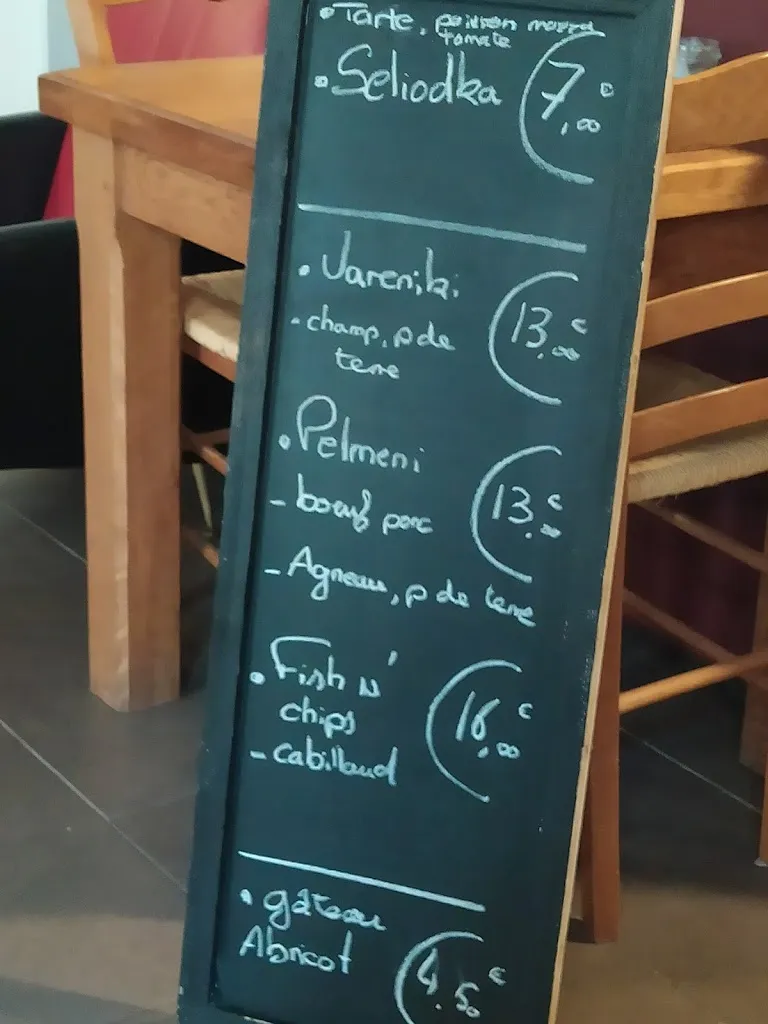 • Tarte, poisson mozza
tomate
• Seliodka 7,00 €
• Vareniki
- champ, p de 13,00 €
terre
• Pelmeni
- boeuf porc 13,00 €
- Agneau, p de terre
• Fish n'
chips 16,00 €
- Cabillaud
• gâteau
Abricot 4.50 €